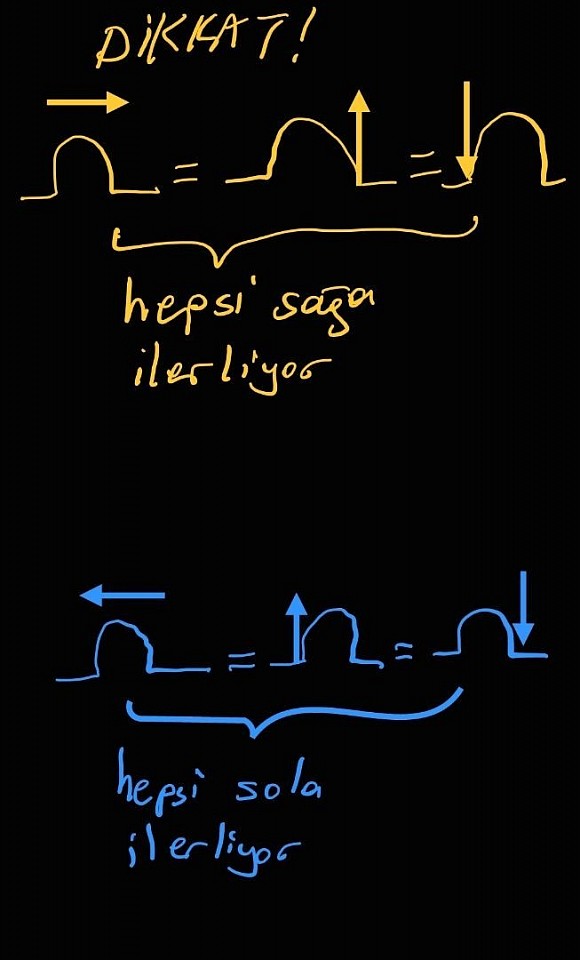 DİKKAT!
= =
hepsi sağa
ilerliyor
= =
hepsi sola
ilerliyor